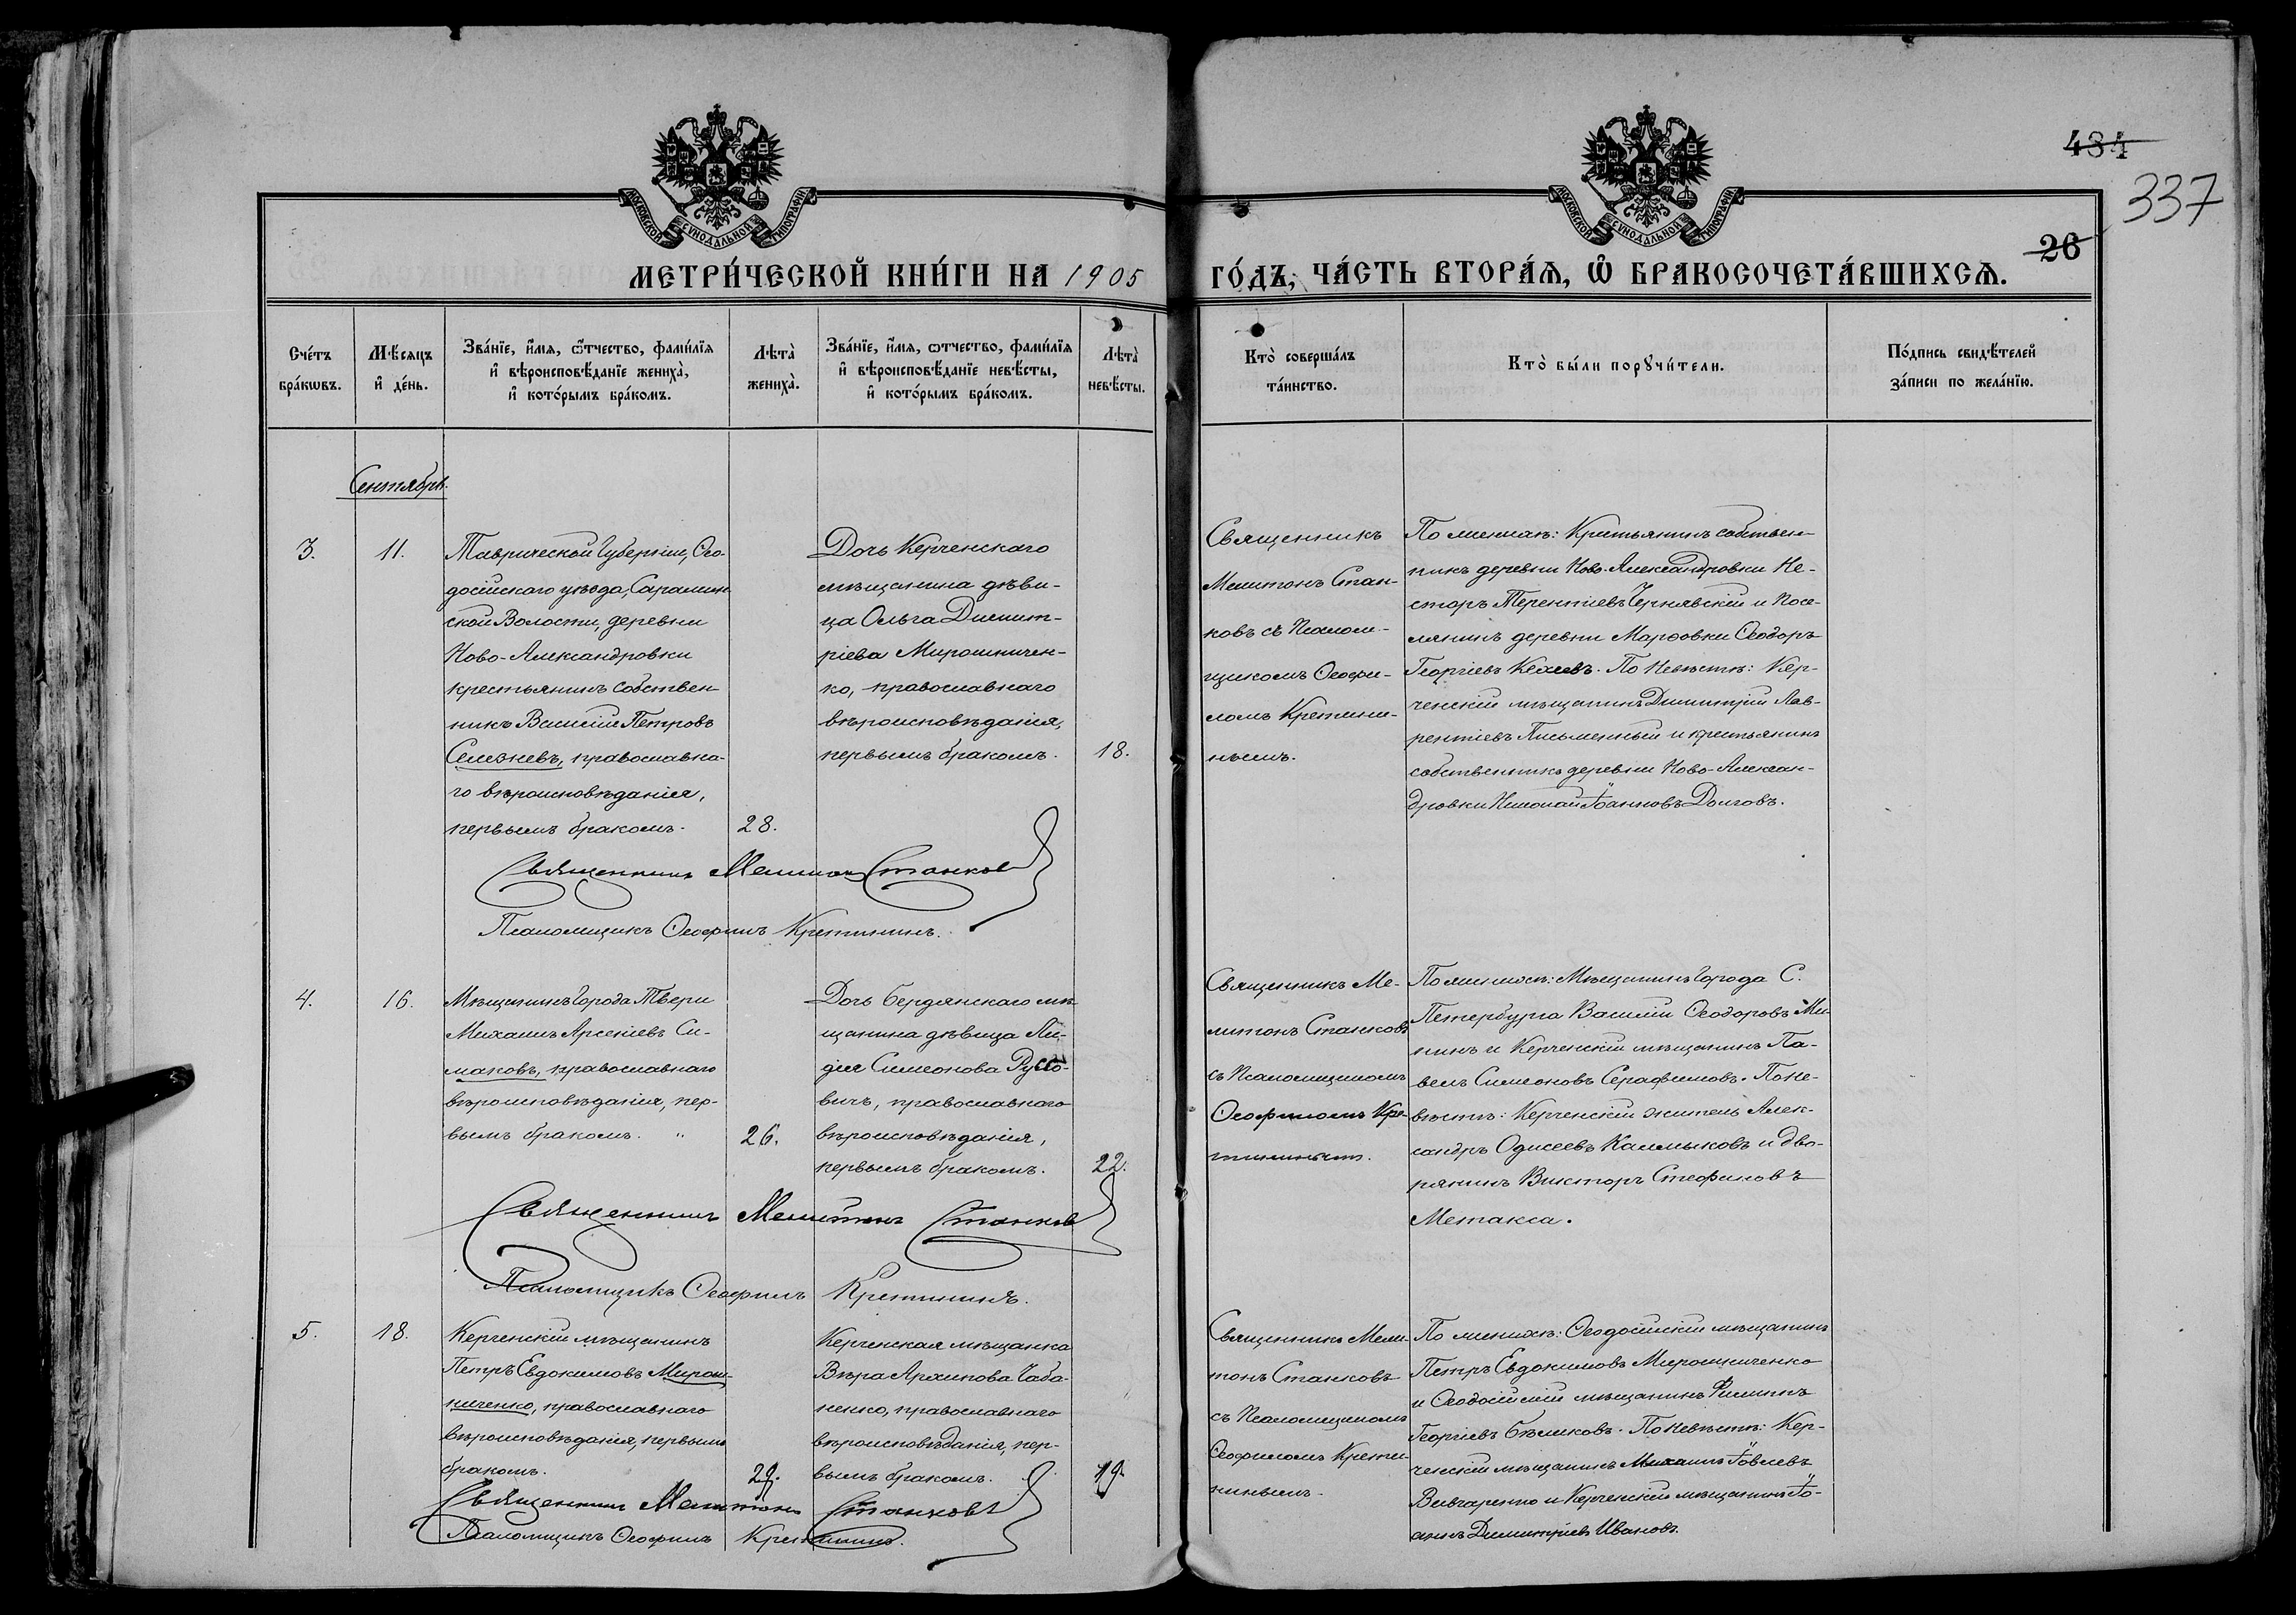 МОСКОВСКОЙ СѴНОДАЛЬНОЙ ТИПОГРАФІИ
МОСКОВСКОЙ СѴНОДАЛЬНОЙ ТИПОГРАФІИ
434
337
26
МЕТРИ́ЧЕСКОЙ КНИ́ГИ НА 1905
ГО́ДЪ, ЧА́СТЬ ВТОРА́Ѧ, Ѽ БРАКОСОЧЕТА́ВШИХСѦ.
Сче́тъ
бра́кѡвъ.
Мѣ́сяцъ
и҆ де́нь.
Зва́нїе, и҆́мя, ѻ҆́тчество, фамѝлїя
и҆ вѣроисповѣ́данїе жениха̀,
и҆ кото́рымъ бра́комъ.
Лѣта̀
жениха̀.
Зва́нїе, и҆́мя, ѻтчество, фамѝлїя
и҆ вѣроисповѣ́данїе невѣ́сты,
и҆ кото́рымъ бра́комъ.
Лѣта̀
невѣ́сты.
Кто̀ соверша́лъ
та́инство.
Кто̀ бы́ли порꙋчи́тели.
По́дпись свидѣ́телей
за́писи по жела́нїю.
Сентябрь.
3.
11.
Таврической Губерніи, Ѳео-
досійскаго уѣзда, Сарамин-
ской Волости, деревни
Ново-Александровки
крестьянинъ собствен-
никъ Василій Петровъ
Селезневъ, православна-
го вѣроисповѣданія,
первымъ бракомъ.
28.
Дочь Керченскаго
мѣщанина дѣви-
ца Ольга Димит-
ріева Мирошничен-
ко, православнаго
вѣроисповѣданія,
первымъ бракомъ.
18.
Священникъ
Мелитонъ Стан-
ковъ съ Псалом-
щикомъ Ѳеофи-
ломъ Кретини-
нымъ.
По женихѣ: Крестьянинъ собствен-
никъ деревни Ново-Александровки Не-
сторъ Терентіевъ Чернявскій и посе-
лянинъ деревни Марѳовки Ѳеодоръ
Георгіевъ Кехаевъ. По невѣстѣ: Кер-
ченскій мѣщанинъ Димитрій Лав-
рентіевъ Письменный и крестьянинъ
собственникъ деревни Ново-Алексан-
дровки Николай Іоанновъ Долговъ.
Священникъ Мелитонъ Станковъ
Псаломщикъ Ѳеофилъ Кретининъ.
4.
16.
Мѣщанинъ Города Твери
Михаилъ Арсеніевъ Си-
маковъ, православнаго
вѣроисповѣданія, пер-
вымъ бракомъ. "
26.
Дочь Бердянскаго мѣ-
щанина дѣвица Ли-
дія Симеонова Руссо-
вичъ, православнаго
вѣроисповѣданія,
первымъ бракомъ.
22.
Священникъ Ме-
литонъ Станковъ
съ Псаломщикомъ
Ѳеофиломъ Кре-
тининымъ.
По женихѣ: Мѣщанинъ Города С.
Петербурга Василій Ѳеодоровъ Ми-
нинъ и Керченскій мѣщанинъ Па-
велъ Симеоновъ Серафимовъ. По не-
вѣстѣ: Керченскій житель Алек-
сандръ Одисеевъ Калмыковъ и дво-
рянинъ Викторъ Стефановъ
Метакса.
Священникъ Мелитонъ Станковъ
Псаломщикъ Ѳеофилъ Кретининъ.
5.
18.
Керченскій мѣщанинъ
Петръ Евдокимовъ Мирош-
ниченко, православнаго
вѣроисповѣданія, первымъ
бракомъ.
29.
Керченская мѣщанка
Вѣра Архипова Чаба-
ненко, православнаго
вѣроисповѣданія, пер-
вымъ бракомъ.
19.
Священникъ Мели-
тонъ Станковъ
съ Псаломщикомъ
Ѳеофиломъ Крети-
нинымъ.
По женихѣ: Ѳеодосійскій мѣщанинъ
Петръ Евдокимовъ Мирошниченко
и Ѳеодосійскій мѣщанинъ Филиппъ
Георгіевъ Бѣликовъ. По невѣстѣ: Кер-
ченскій мѣщанинъ Михаилъ Іовлевъ
и Керченскій мѣщанинъ Іо-
аннъ Димитріевъ Ивановъ.
Священникъ Мелитонъ Станковъ
Псаломщикъ Ѳеофилъ Кретининъ.